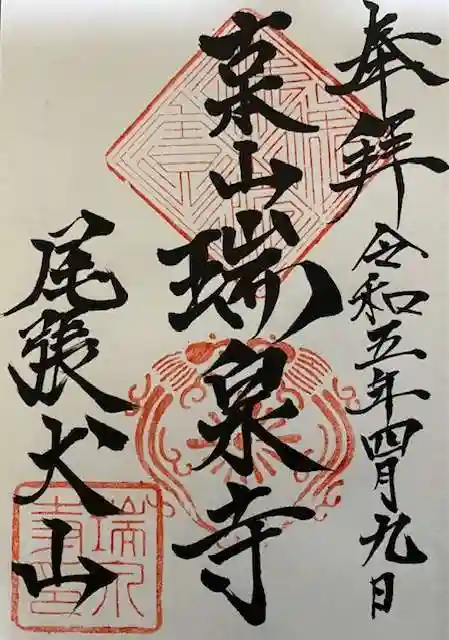 奉拝
令和五年四月九日
山瑞泉寺
尾張犬山
瑞泉
寺印